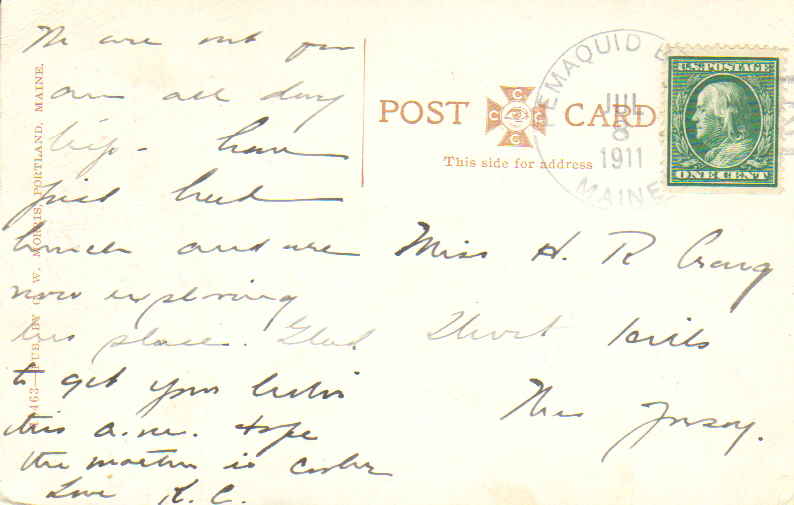 We are out for
an all day
trip - have
just had
lunch and are
now exploring
this place. Glad
to get your letter
this a.m. Hope
the weather is cooler
Love K. C.
PUB. BY G. W. MORRIS, PORTLAND, MAINE.
POST CARD
C C C C
This side for address
PEMAQUID BE
JUL
8
1911
MAINE
U.S. POSTAGE
ONE CENT
Miss H. R. Craig
Short Hills
New Jersey.